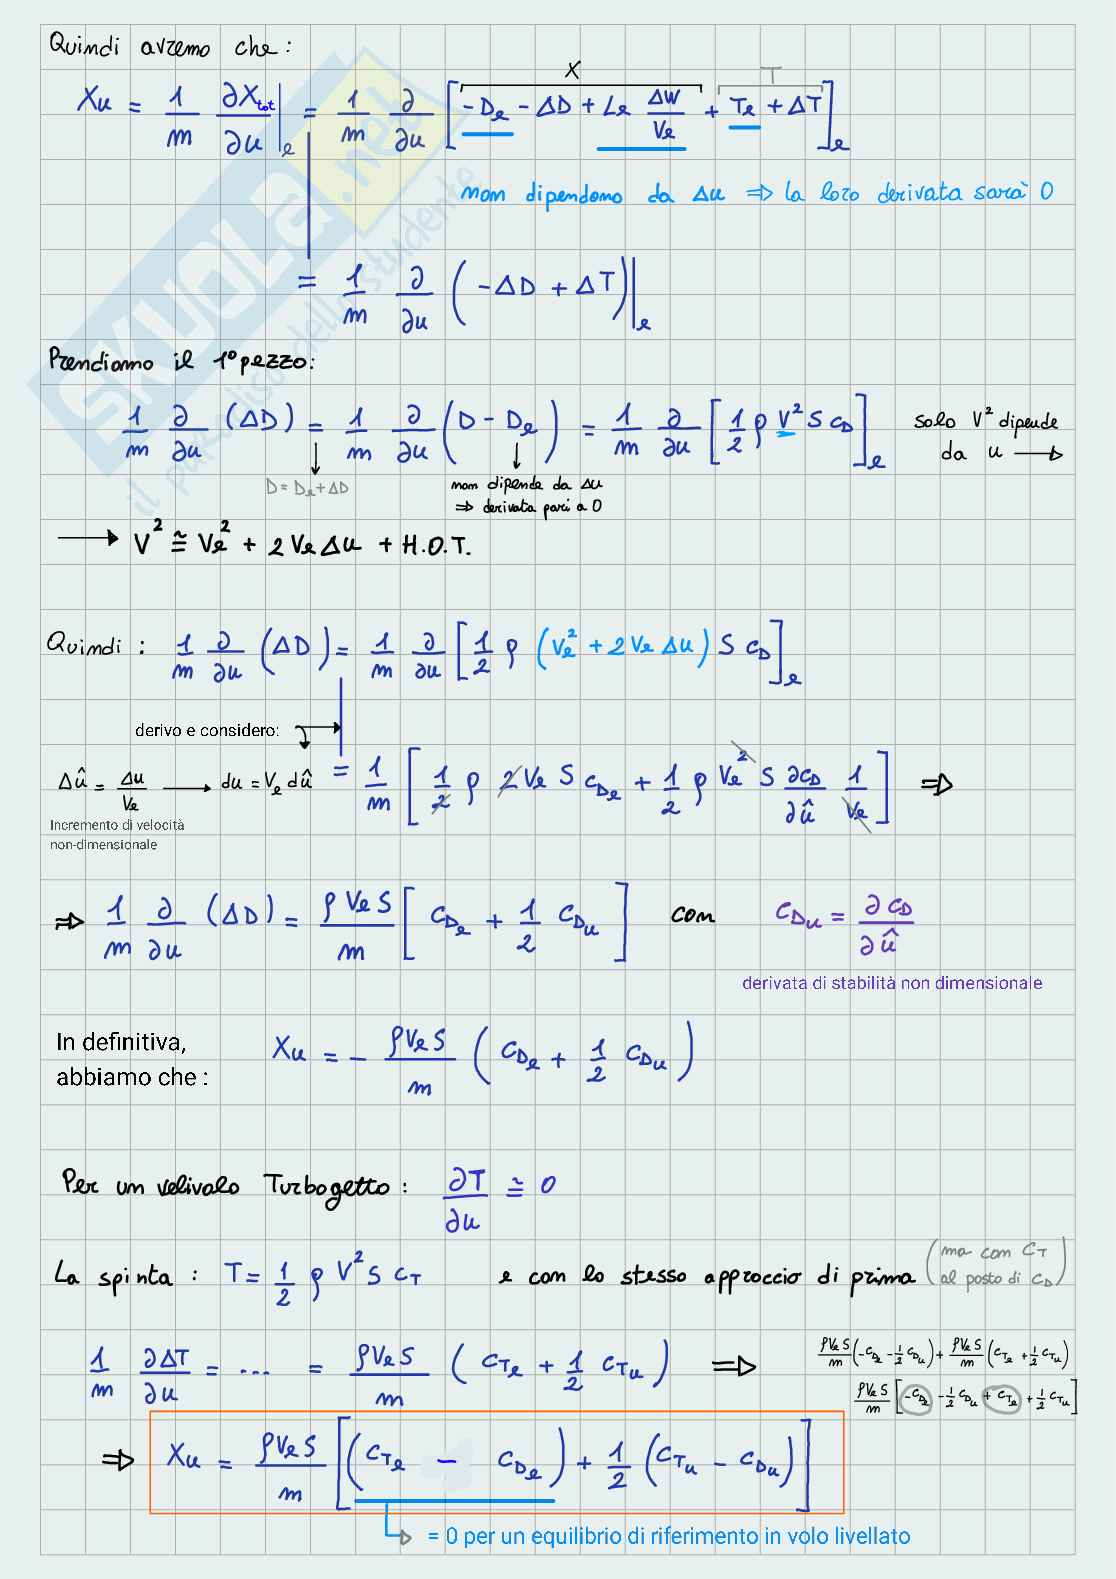 Quindi avremo che:
Xu = 1/m ∂Xtot/∂u|e = 1/m ∂/∂u [-De - ΔD + Le ΔW/Ve + Te + ΔT]e
X
T
non dipendono da Δu ⇒ la loro derivata sarà 0
= 1/m ∂/∂u (-ΔD + ΔT)|e
Prendiamo il 1° pezzo:
1/m ∂/∂u (ΔD) = 1/m ∂/∂u (D - De) = 1/m ∂/∂u [1/2 ρ V² S CD]e
solo V² dipende
da u →
D = De + ΔD
non dipende da Δu
⇒ derivata pari a 0
→ V² ≅ Ve² + 2 Ve Δu + H.O.T.
Quindi: 1/m ∂/∂u (ΔD) = 1/m ∂/∂u [1/2 ρ (Ve² + 2 Ve Δu) S CD]e
derivo e considero:
Δû = Δu/Ve → du = Ve dû
= 1/m [1/2 ρ 2Ve S CDe + 1/2 ρ Ve² S ∂CD/∂û 1/Ve] ⇒
Incremento di velocità
non-dimensionale
⇒ 1/m ∂/∂u (ΔD) = ρ Ve S/m [CDe + 1/2 CDu] con CDu = ∂CD/∂û
derivata di stabilità non dimensionale
In definitiva,
abbiamo che :
Xu = - ρVe S/m (CDe + 1/2 CDu)
Per un velivolo Turbogetto: ∂T/∂u ≅ 0
La spinta : T = 1/2 ρ V² S CT e con lo stesso approccio di prima
(ma con CT
al posto di CD)
1/m ∂ΔT/∂u = .... = ρVe S/m (CTe + 1/2 CTu) ⇒
ρVe S/m (-CDe - 1/2 CDu) + ρVe S/m (CTe + 1/2 CTu)
ρVe S/m [-CDe - 1/2 CDu + CTe + 1/2 CTu]
⇒ Xu = ρVe S/m [(CTe - CDe) + 1/2 (CTu - CDu)]
= 0 per un equilibrio di riferimento in volo livellato
SKUOLA.net
il paradiso dello studente